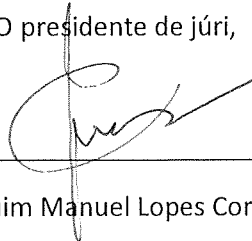 O presidente de júri,
uim Manuel Lopes Cor